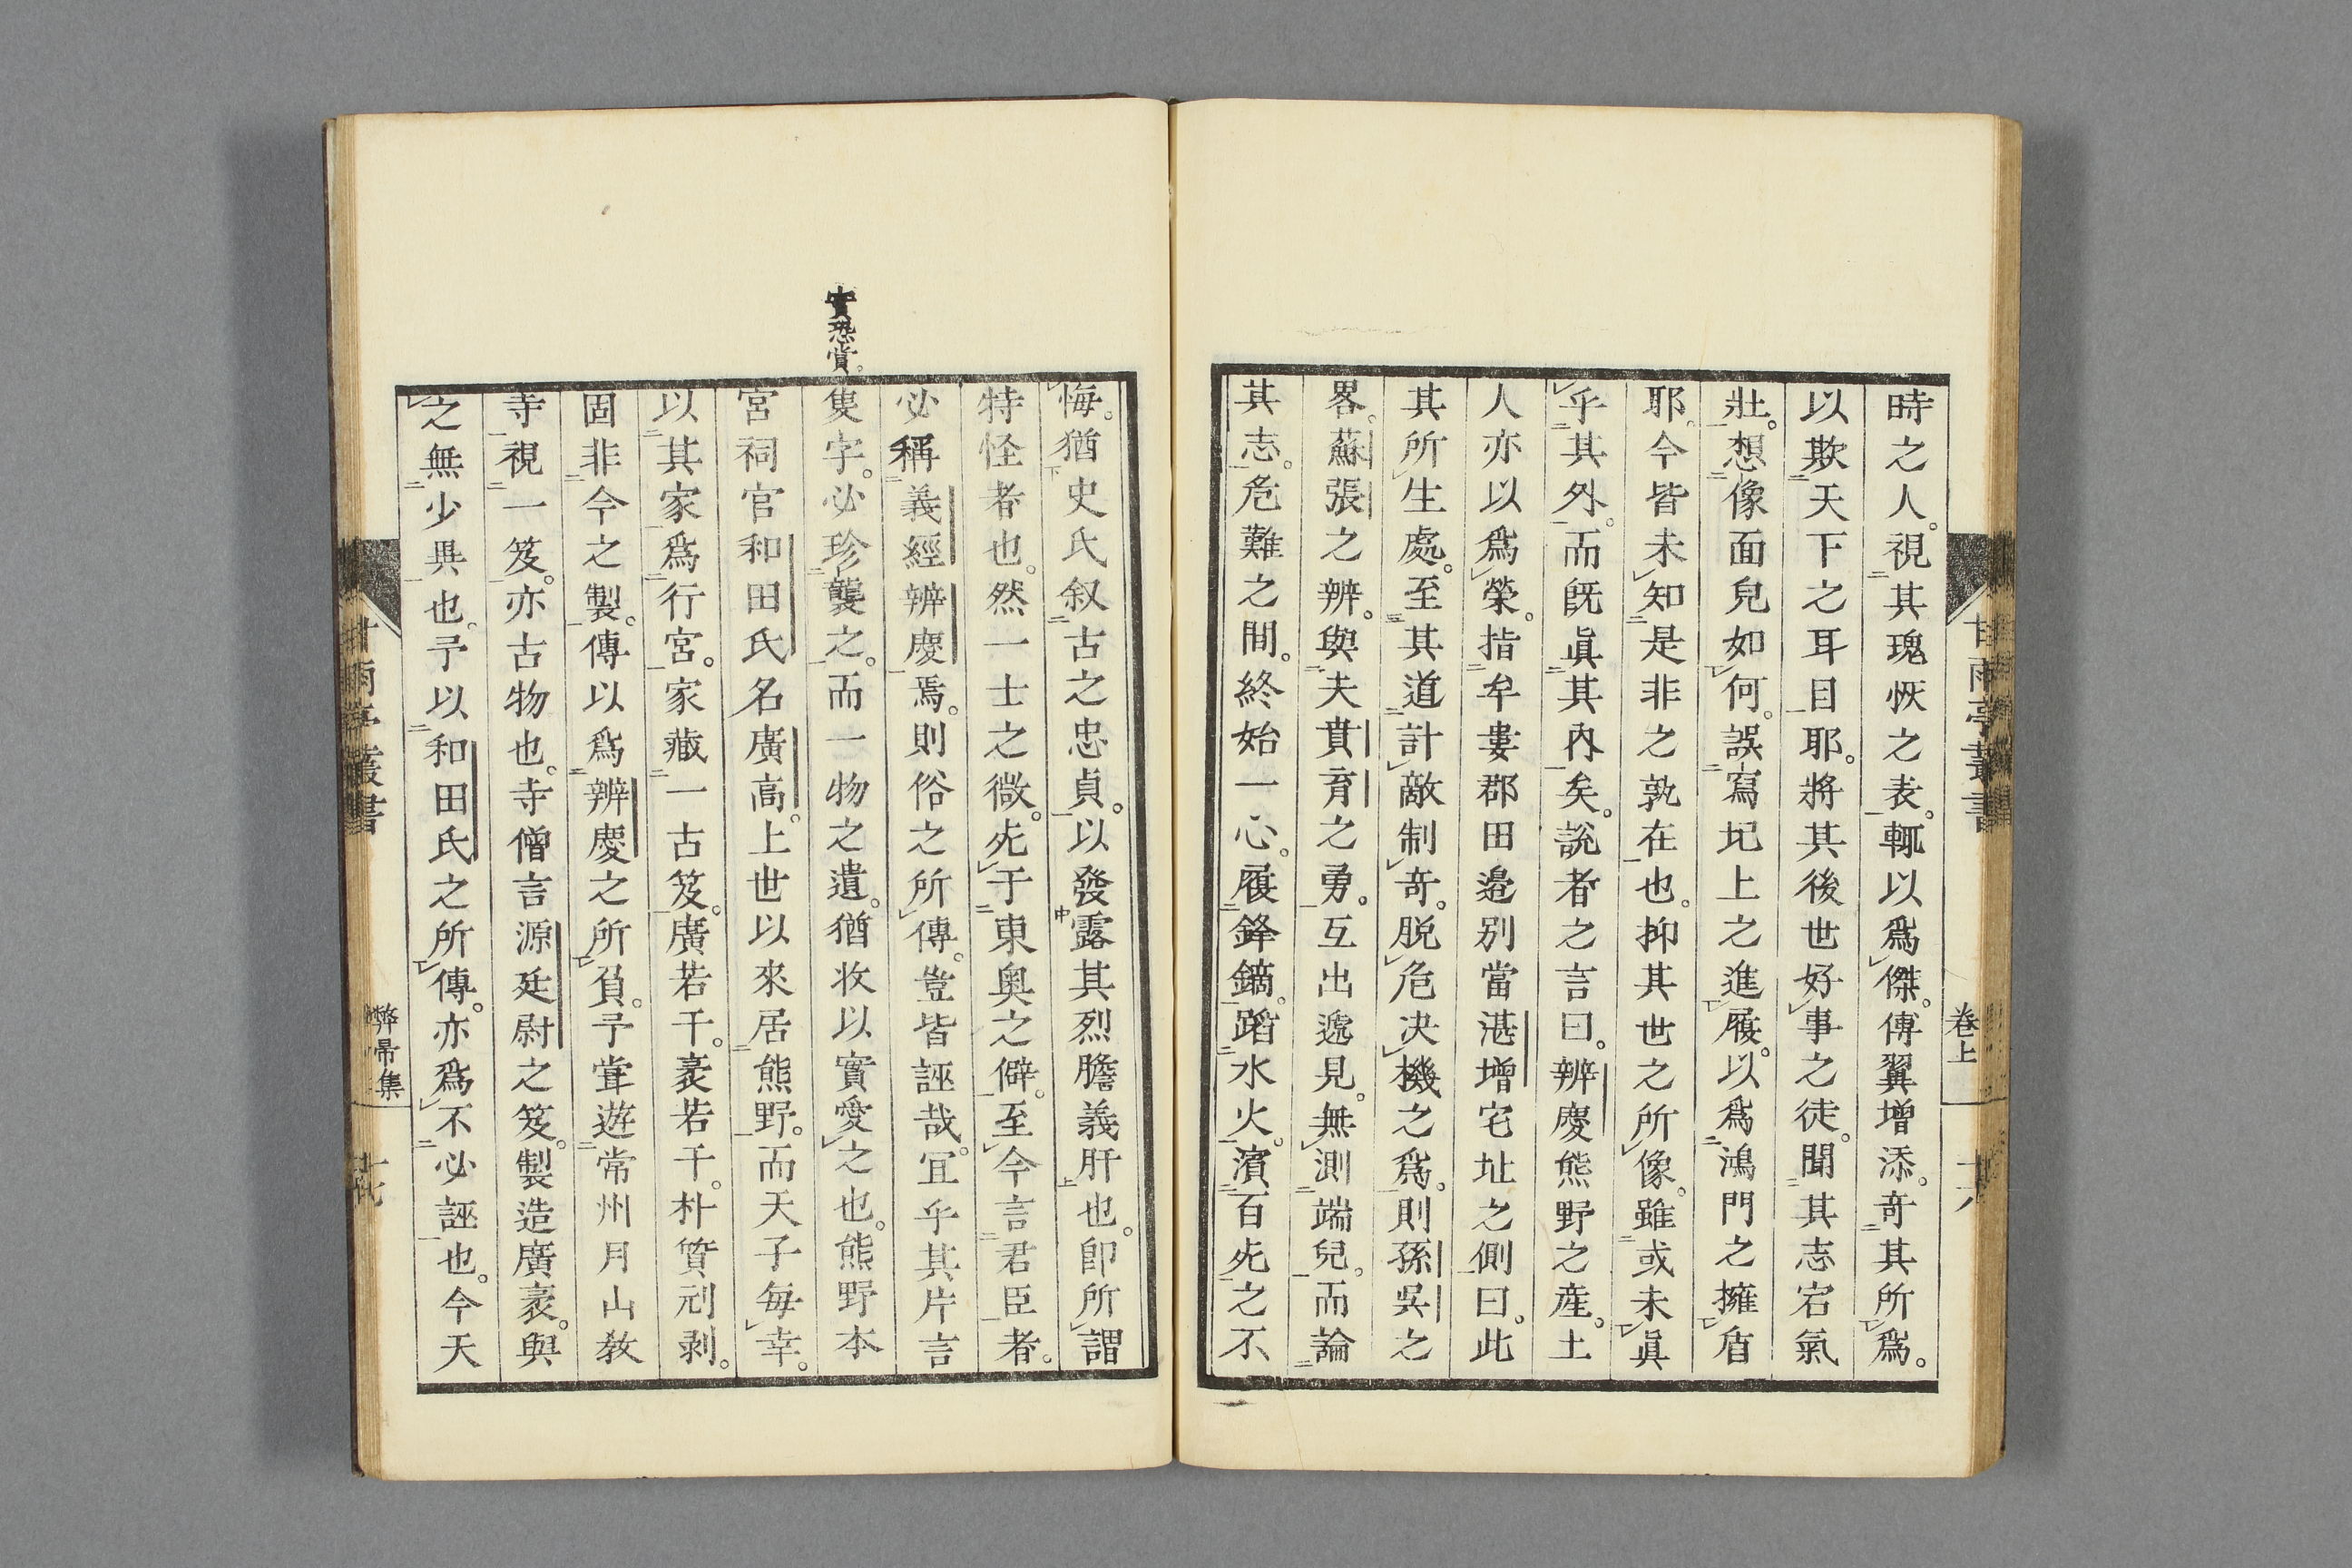 時之人。視其瑰恢之表。輒以爲傑。傅翼增添。奇其所爲。
以欺天下之耳目耶。將其後世好事之徒。聞其志宕氣
壯。想像面皃如何。誤寫圯上之進履。以爲鴻門之擁盾
耶。今皆未知是非之孰在也。抑其世之所像。雖或未眞
乎其外。而旣眞其內矣。說者之言曰。辨慶熊野之産。土
人亦以爲榮。指牟婁郡田邉別當湛增宅址之側曰。此
其所生處。至其道計敵制奇。脱危决機之爲。則孫吳之
畧。蘇張之辨。與夫賁育之勇。互出遞見。無測端皃。而論
其志。危難之間。終始一心。履鋒鏑。蹈水火。濱百死之不
甘雨亭叢書
卷上
十六
悔。猶史氏叙古之忠貞。以發露其烈膽義肝也。卽所謂
特怪者也。然一士之微。死于東奧之僻。至今言君臣者。
必稱義經辨慶焉。則俗之所傳。豈皆誣哉。宜乎其片言
隻字。必珍襲之。而一物之遺。猶收以實愛之也。熊野本
宮祠官和田氏名廣高。上世以來居熊野。而天子每幸。
以其家爲行宮。家藏一古笈。廣若干。袤若干。朴質刓剥。
固非今之製。傳以爲辨慶之所負。予甞遊常州月山敎
寺。視一笈。亦古物也。寺僧言源廷尉之笈。製造廣袤。與
之無少異也。予以和田氏之所傳。亦爲不必誣也。今天
實恐賞。
甘雨亭叢書
弊帚集
十七